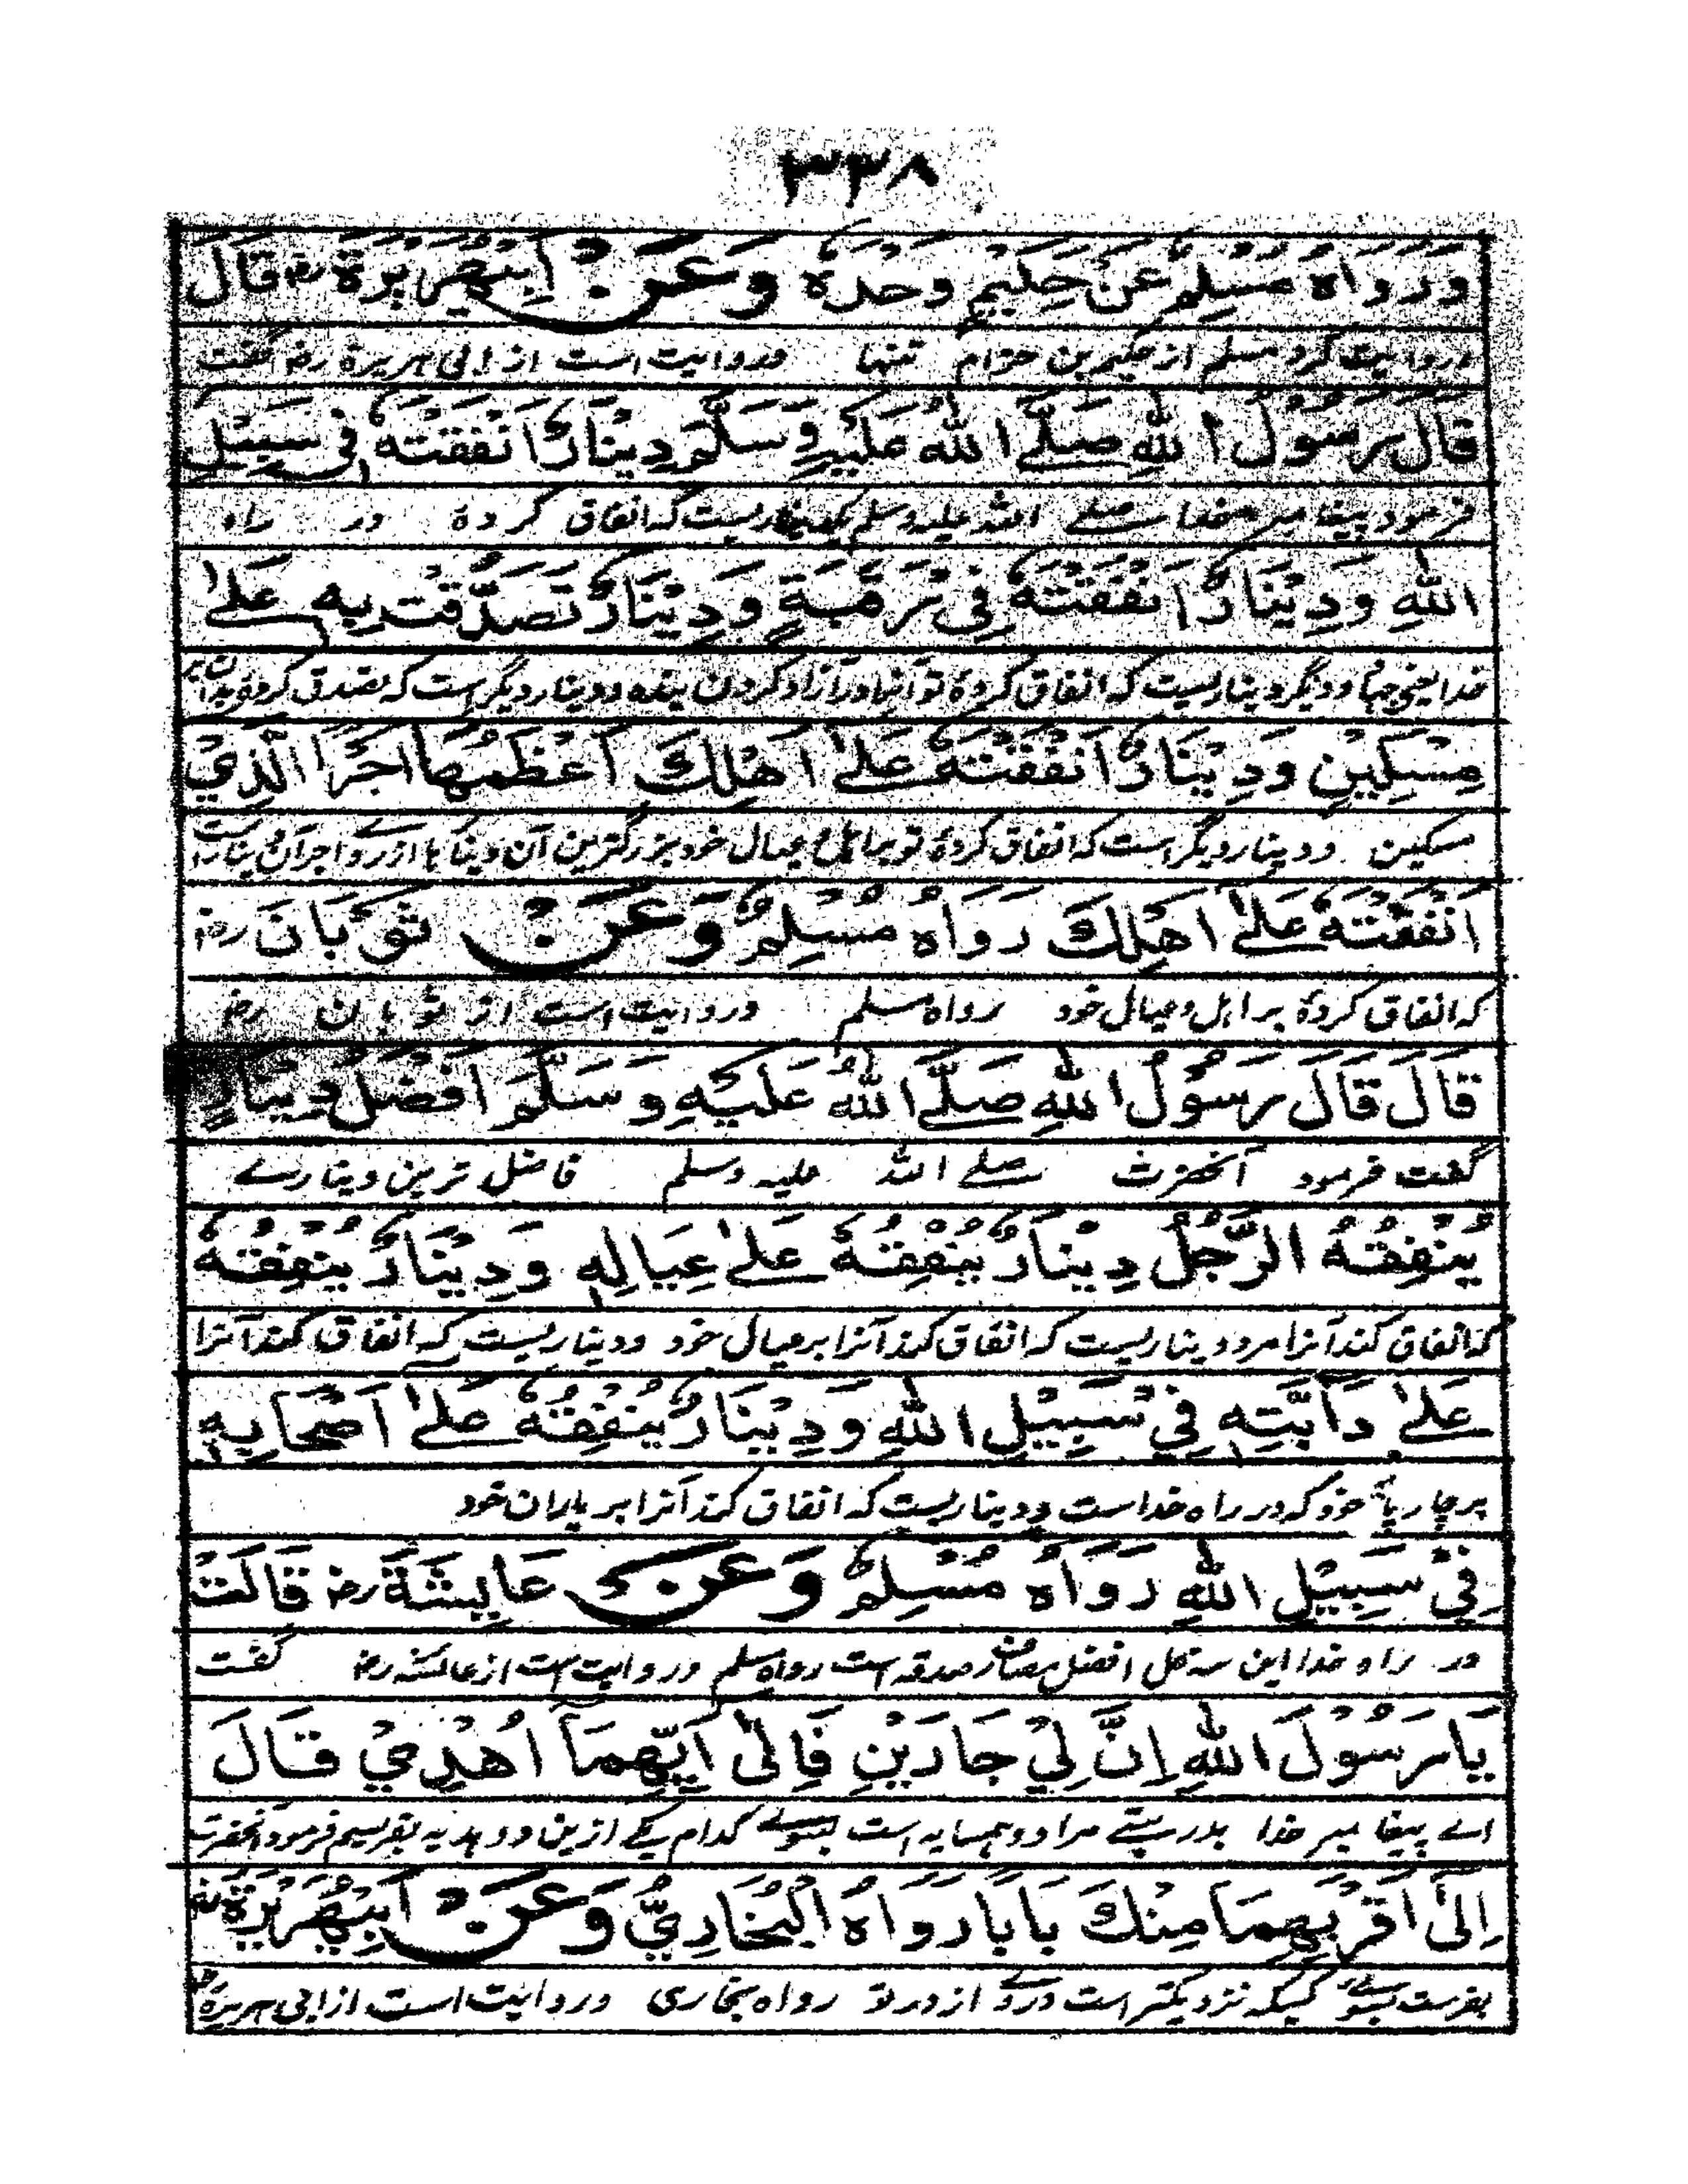 ۳۳۸
وَرَوَاهُ مُسْلِمٌ عَنْ حَكِيْمٍ وَحْدَهُ وَعَنْ اَبِيْهُرَيْرَةَ رض قَالَ
وروایت کرد مسلم از حکیم بن حزام تنها وروایت است از ابی هریرة رض گفت
قَالَ رَسُوْلُ اللهِ صَلَّے اللهُ عَلَيْهِ وَسَلَّمَ دِيْنَارٌ اَنْفَقْتَهٗ فِي سَبِيْلِ
فرمود پیغامبر خدا صلے الله علیه وسلم یک دیناریست که انفاق کردهٔ در راه
اللهِ وَدِيْنَارٌ اَنْفَقْتَهٗ فِي رَقَبَةٍ وَدِيْنَارٌ تَصَدَّقْتَ بِهٖ عَلٰے
خدا یعنی جهاد ودیگر دیناریست که انفاق کردهٔ تو آنرا در آزاد کردن بنده ودینار دیگر است که تصدق کردهٔ بدان بر
مِسْكِيْنٍ وَدِيْنَارٌ اَنْفَقْتَهٗ عَلٰے اَهْلِكَ اَعْظَمُهَا اَجْرًا الَّذِيْ
مسکین ودینار دیگر است که انفاق کردهٔ تو بر اهل وعیال خود بزرگترین آن دینارها از روے اجر آن دینار است
اَنْفَقْتَهٗ عَلٰے اَهْلِكَ رَوَاهُ مُسْلِمٌ وَعَنْ ثَوْبَانَ رض
که انفاق کردهٔ بر اهل وعیال خود رواه مسلم وروایت است از ثوبان رض
قَالَ قَالَ رَسُوْلُ اللهِ صَلَّے اللهُ عَلَيْهِ وَسَلَّمَ اَفْضَلُ دِيْنَارٍ
گفت فرمود آنحضرت صلے الله علیه وسلم فاضل ترین دینارے
يُنْفِقُهُ الرَّجُلُ دِيْنَارٌ يُنْفِقُهٗ عَلٰے عِيَالِهٖ وَدِيْنَارٌ يُنْفِقُهٗ
که انفاق کند آنرا مرد دیناریست که انفاق کند آنرا بر عیال خود ودیناریست که انفاق کند آنرا
عَلٰے دَآبَّتِهٖ فِيْ سَبِيْلِ اللهِ وَدِيْنَارٌ يُنْفِقُهٗ عَلٰے اَصْحَابِهٖ
بر چارپایهٔ خود که در راه خداست ودیناریست که انفاق کند آنرا بر یاران خود
فِيْ سَبِيْلِ اللهِ رَوَاهُ مُسْلِمٌ وَعَنْ عَايِشَةَ رض قَالَتْ
در راه خدا این سه محل افضل مصارف صدقه است رواه مسلم وروایت است از عائشه رض گفت
يَا رَسُوْلَ اللهِ اِنَّ لِيْ جَارَيْنِ فَاِلٰى اَيِّهِمَا اُهْدِيْ قَالَ
اے پیغامبر خدا بدرستے مرا دو همسایه است بسوے کدام یکے ازین دو هدیه بفرستم فرمود آنحضرت
اِلٰى اَقْرَبِهِمَا مِنْكَ بَابًا رَوَاهُ الْبُخَارِيُّ وَعَنْ اَبِيْهُرَيْرَةَ رض
بفرست بسوے کسیکه نزدیکتر است در او از در تو رواه بخاری وروایت است از ابی هریرة رض